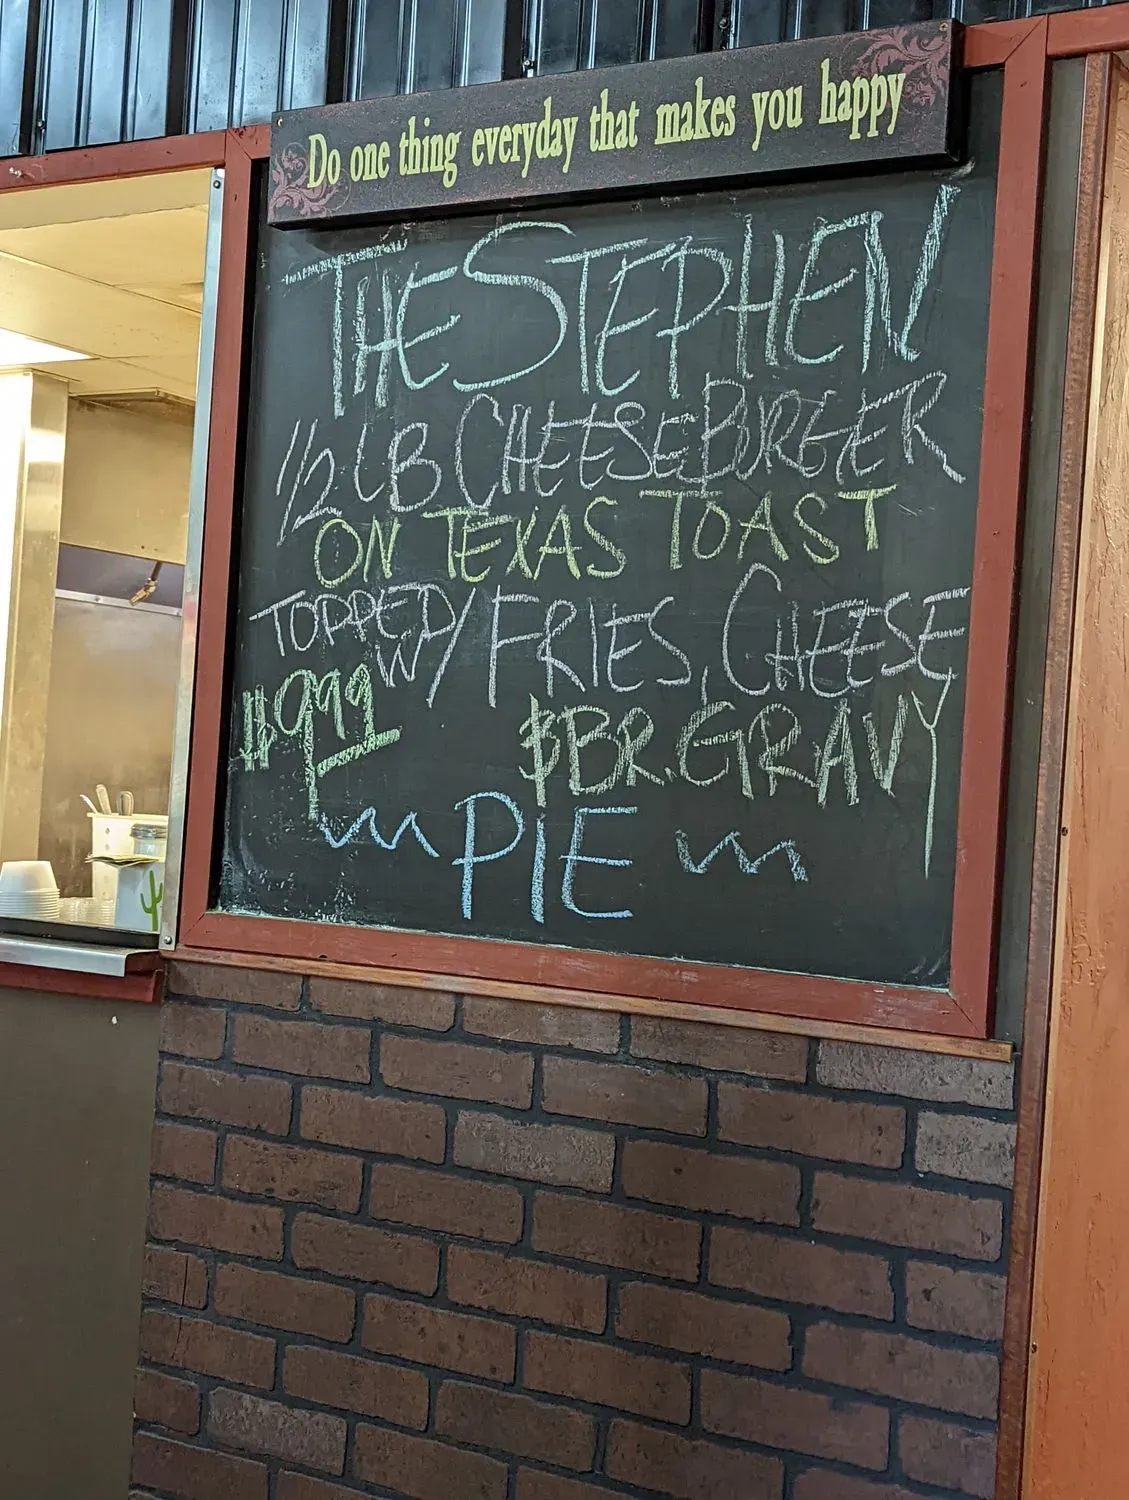 Do one thing everyday that makes you happy
THE STEPHEN
1/2 LB CHEESEBURGER
ON TEXAS TOAST
TOPPED W/ FRIES, CHEESE
$9.99 & BR. GRAVY
PIE